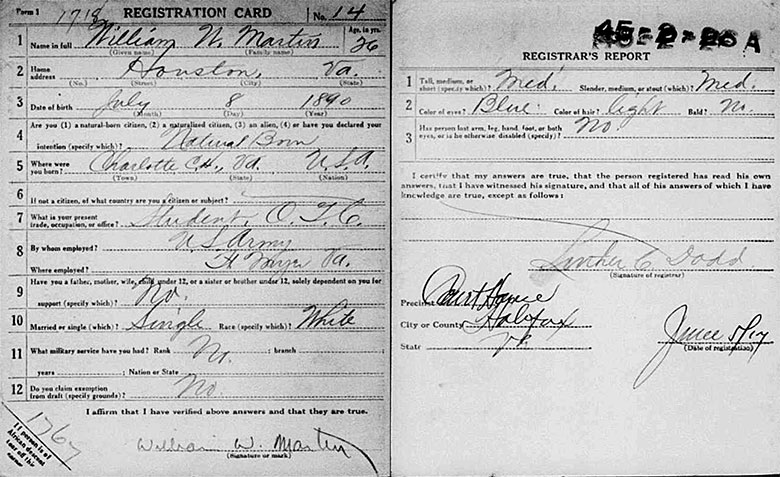 Form 1 1718 REGISTRATION CARD No. 14
1 Name in full William W. Martin Age, in yrs. 26
(Given name) (Family name)
2 Home address Houston, Va.
(No.) (Street) (City) (State)
3 Date of birth July 8 1890
(Month) (Day) (Year)
4 Are you (1) a natural-born citizen, (2) a naturalized citizen, (3) an alien, (4) or have you declared your
intention (specify which)? Natural Born
5 Where were you born? Charlotte C.H., Va. USA.
(Town) (State) (Nation)
6 If not a citizen, of what country are you a citizen or subject?
7 What is your present trade, occupation, or office? Student, O.T.C.
8 By whom employed? US Army
Where employed? Ft Myer Va.
9 Have you a father, mother, wife, child under 12, or a sister or brother under 12, solely dependent on you for
support (specify which)? No.
10 Married or single (which)? Single Race (specify which)? White
11 What military service have you had? Rank No. ; branch
years ; Nation or State
12 Do you claim exemption from draft (specify grounds)? No
I affirm that I have verified above answers and that they are true.
William W. Martin
(Signature or mark)
1767
If person is of
African descent
tear off this
corner
45-2-26 A
REGISTRAR'S REPORT
1 Tall, medium, or short (specify which)? Med. Slender, medium, or stout (which)? Med.
2 Color of eyes? Blue. Color of hair? light Bald? No.
3 Has person lost arm, leg, hand, foot, or both
eyes, or is he otherwise disabled (specify)? No.
I certify that my answers are true, that the person registered has read his own
answers, that I have witnessed his signature, and that all of his answers of which I have
knowledge are true, except as follows:
Luther C. Dodd
(Signature of registrar)
Precinct Court House
City or County Halifax
State Va June 5/17
(Date of registration)